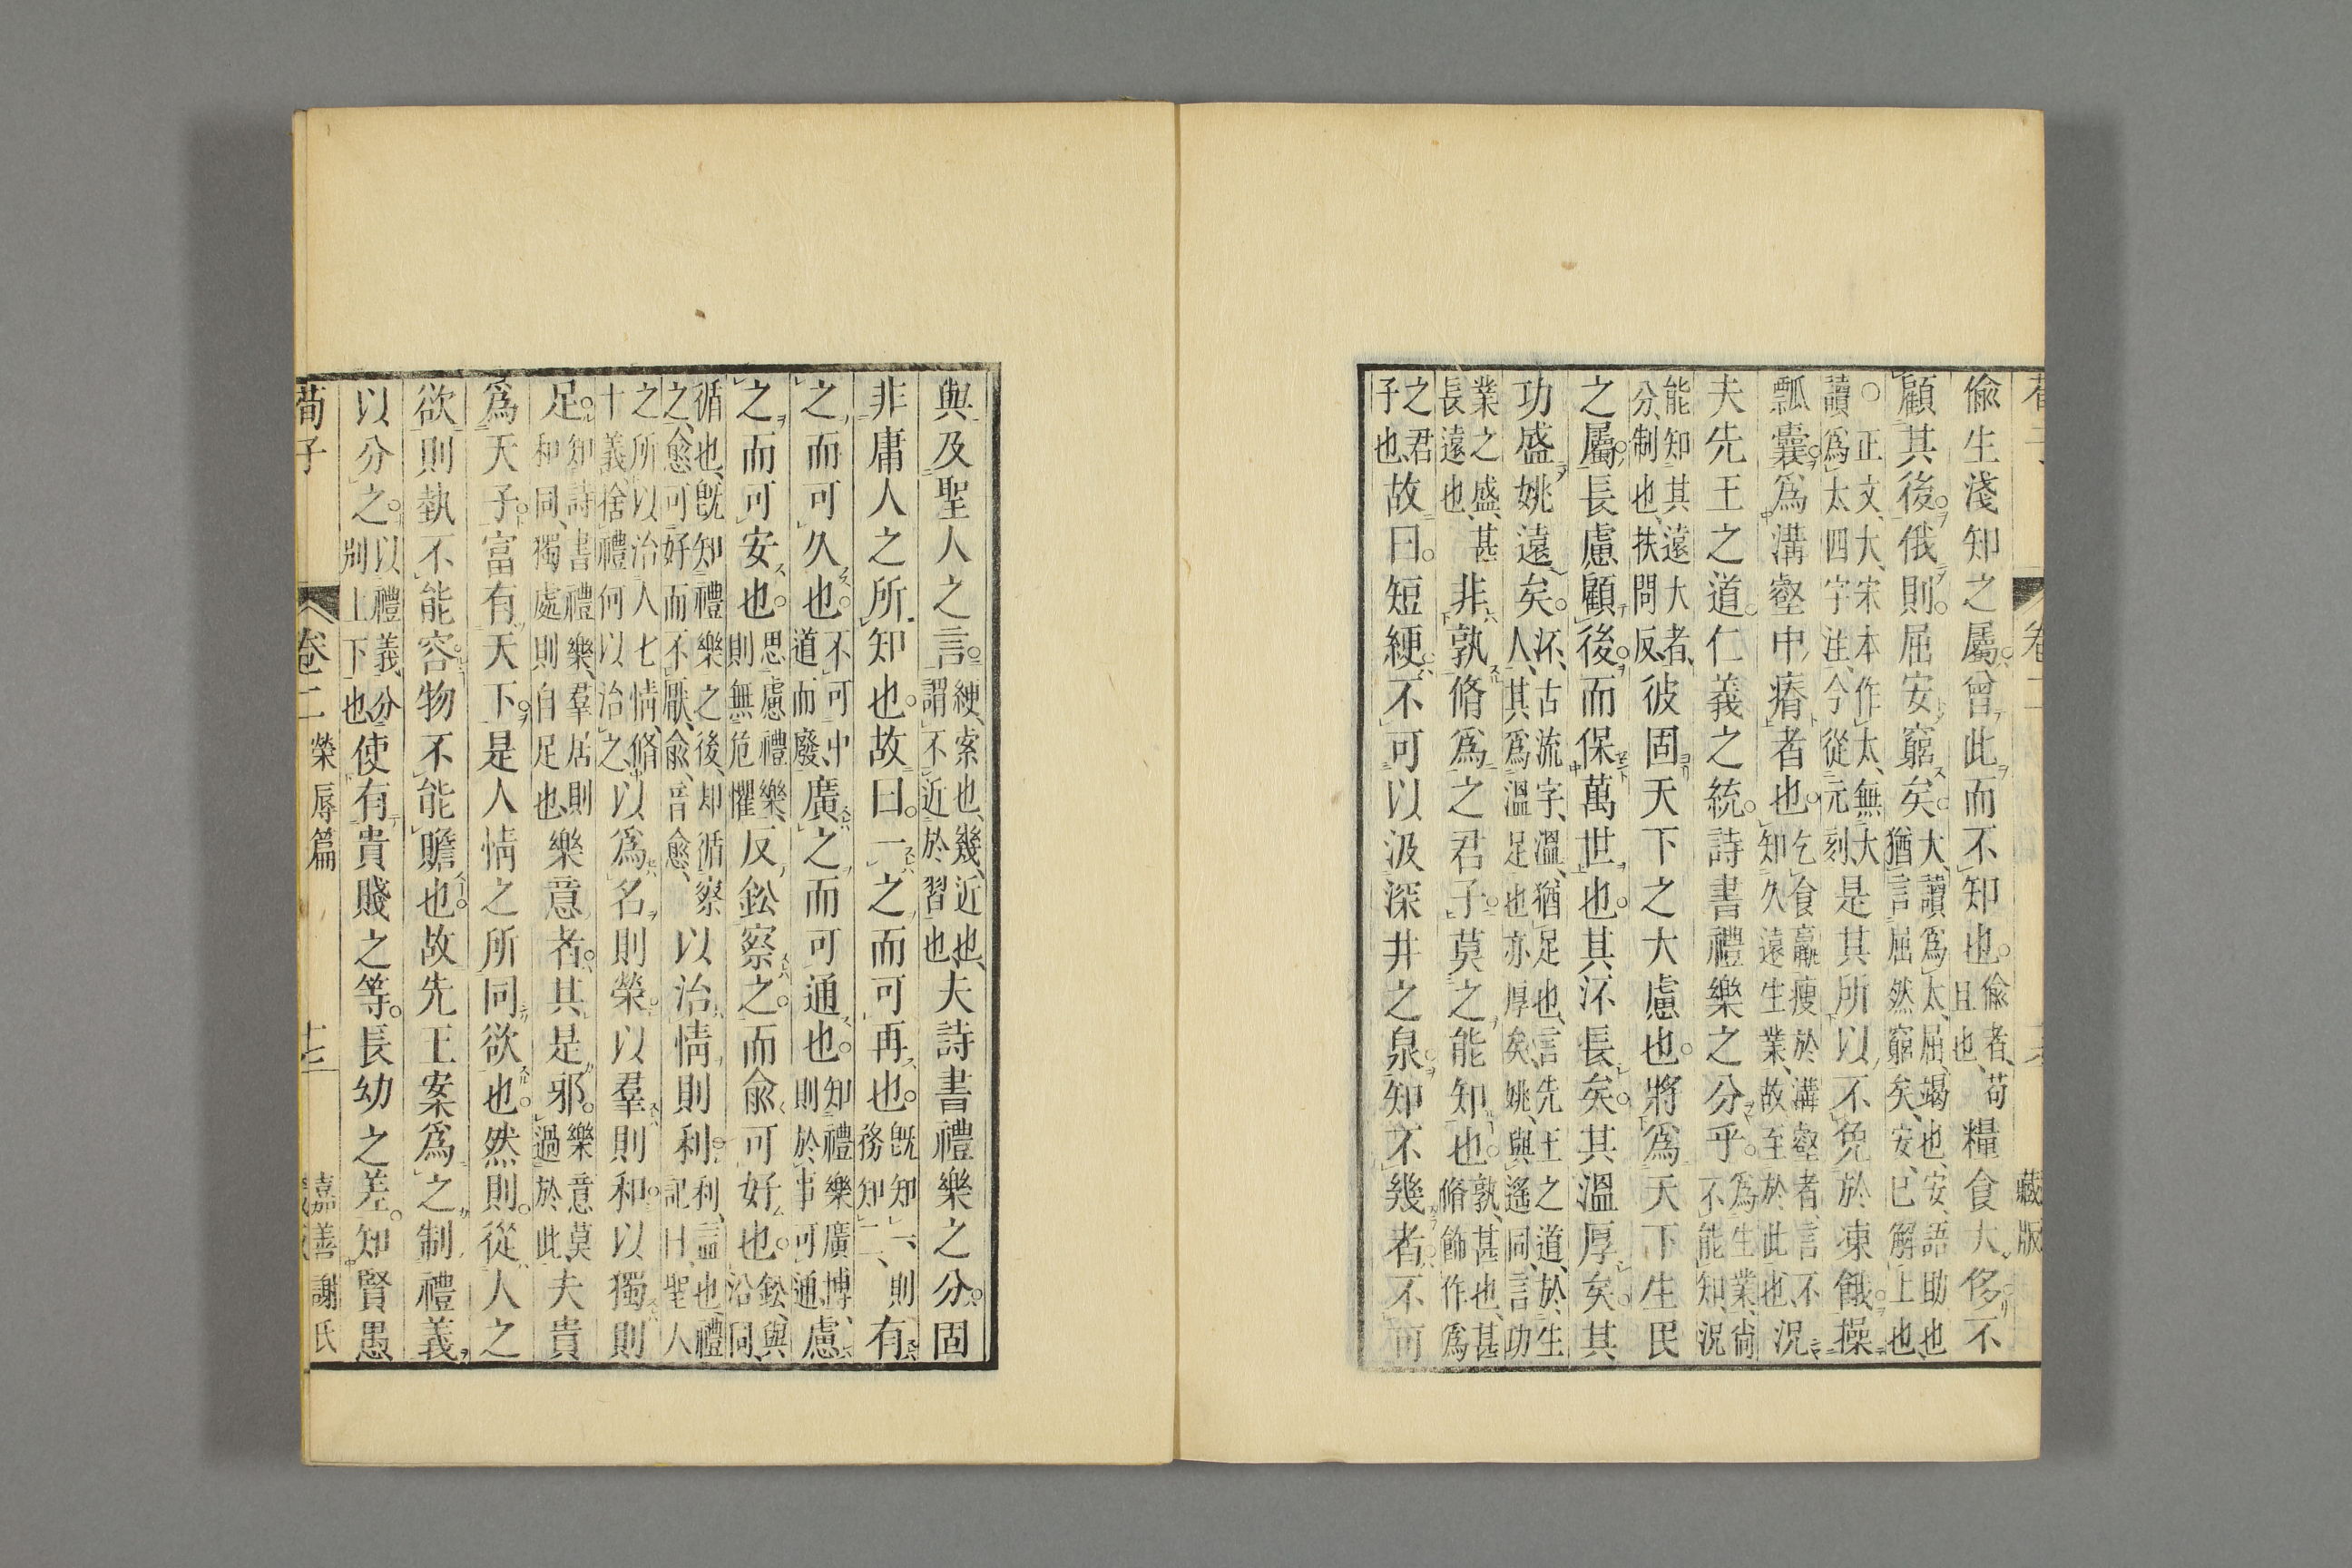 偸生淺知之屬曾此而不知也偸者苟且也糧食大侈不
顧其後俄則屈安窮矣大讀爲太屈竭也安語助也猶言屈然窮矣安已解上也
○正文大宋本作太無大讀爲太四字注今從元刻是其所以不免於凍餓操
瓢囊爲溝壑中瘠者也乞食羸瘦於溝壑者言不知久遠生業故至於此也況
夫先王之道仁義之統詩書禮樂之分乎爲生業尙不能知況
能知其遠大者分制也扶問反彼固天下之大慮也將爲天下生民
之屬長慮顧後而保萬世也其㳅長矣其溫厚矣其
功盛姚遠矣㳅古流字溫猶足也言先王之道於生人其爲溫足也亦厚矣姚與遙同言功
業之盛甚長遠也非孰脩爲之君子莫之能知也孰甚也甚脩飾作爲
之君子也故曰短綆不可以汲深井之泉知不幾者不可
與及聖人之言綆索也幾近也謂不近於習也夫詩書禮樂之分固
非庸人之所知也故曰一之而可再也旣知一則務知二有
之而可久也不可中道而廢廣之而可通也知禮樂廣博則於事可通慮
之而可安也思慮禮樂則無危懼反鉛察之而兪可好也鉛與沿同
循也旣知禮樂之後却循察之愈可好而不厭兪音愈以治情則利利益也禮記曰聖人
之所以治人七情脩十義捨禮何以治之以爲名則榮以羣則和以獨則
足知詩書禮樂羣居則和同獨處則自足也樂意者其是邪樂意莫過於此夫貴
爲天子富有天下是人情之所同欲也然則從人之
欲則埶不能容物不能贍也故先王案爲之制禮義
以分之以禮義分別上下也使有貴賤之等長幼之差知賢愚
荀子
卷二
榮辱篇
十七
嘉善謝氏
藏版